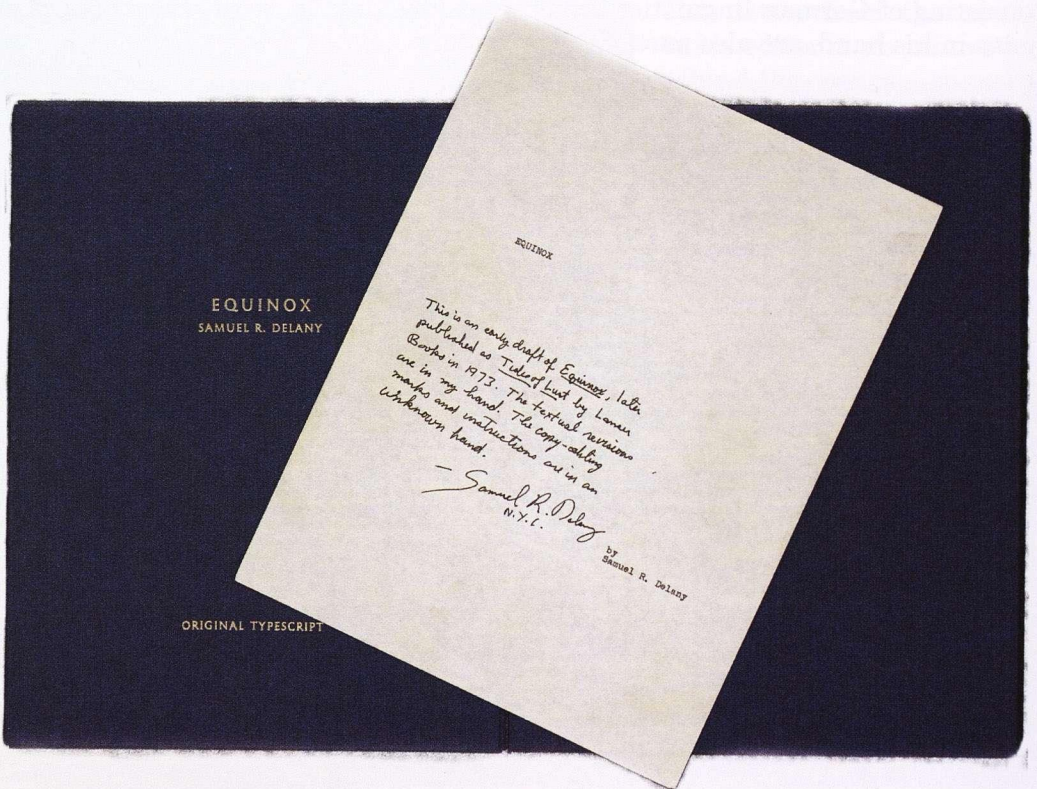 EQUINOX
SAMUEL R. DELANY
ORIGINAL TYPESCRIPT
EQUINOX
This is an early draft of Equinox, later
published as Tides of Lust by Lancer
Books in 1973. The textual revisions
are in my hand. The copy-editing
marks and instructions are in an
unknown hand.
— Samuel R. Delany
N.Y.C.
by
Samuel R. Delany